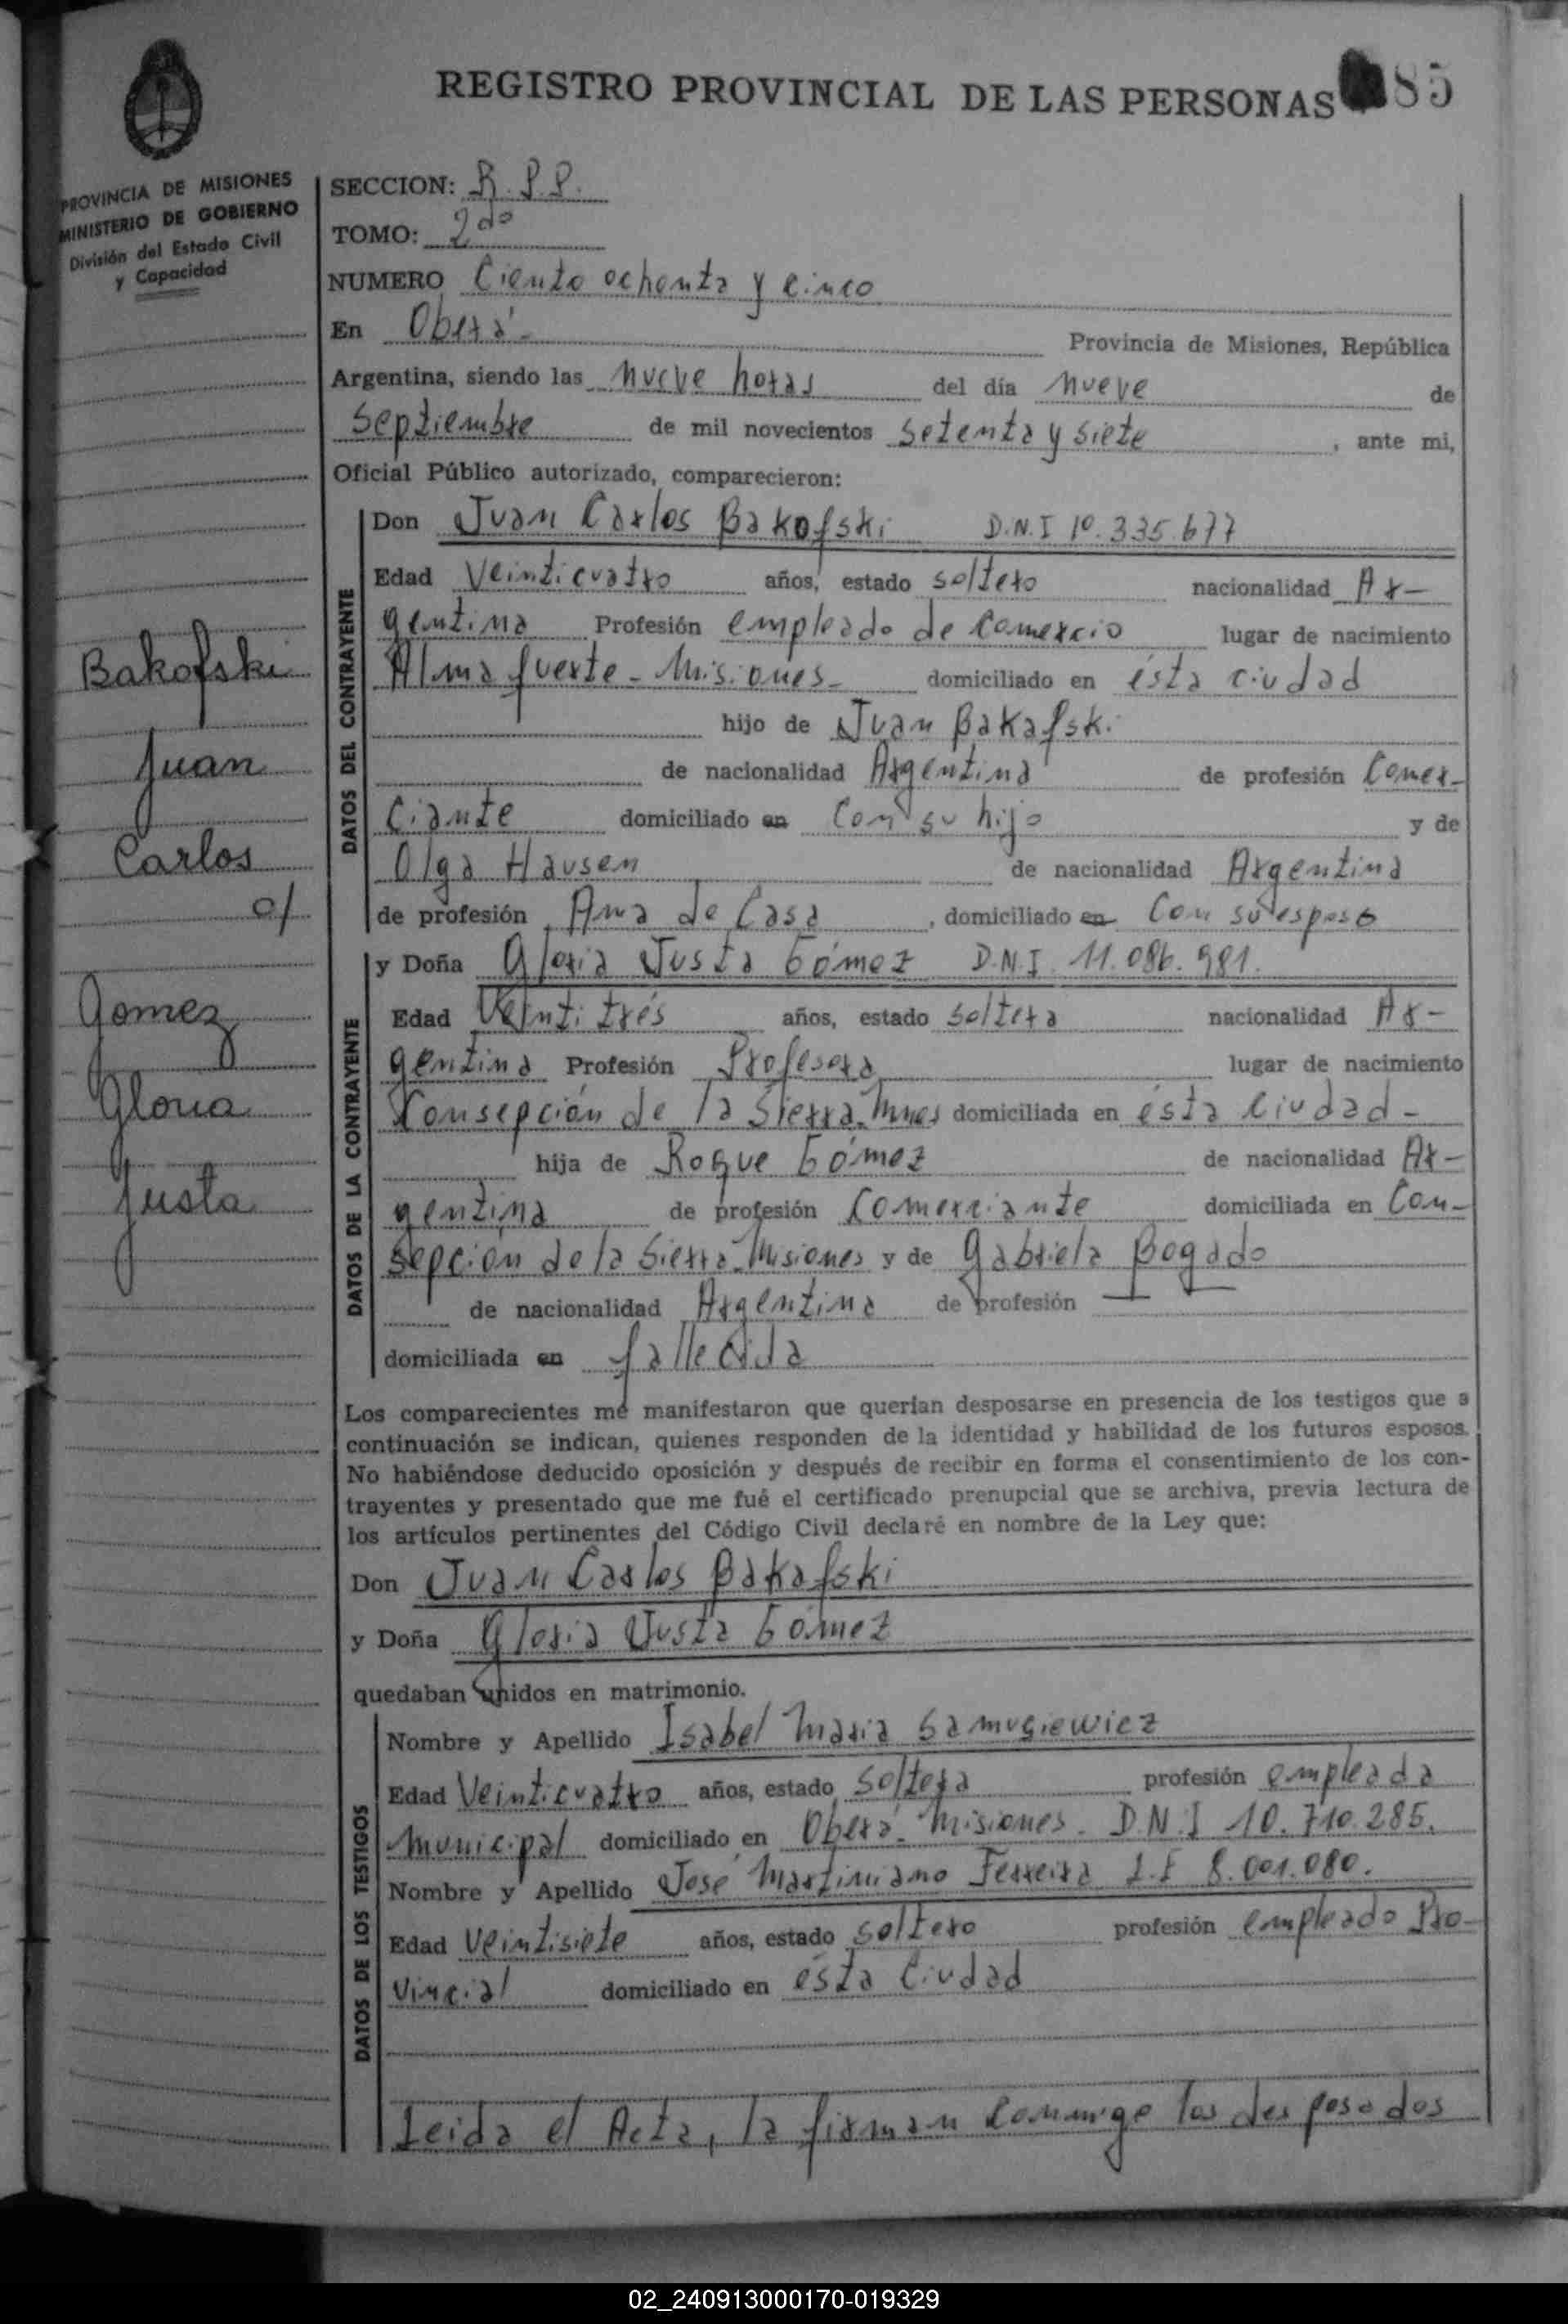 REGISTRO PROVINCIAL DE LAS PERSONAS 85
PROVINCIA DE MISIONES
MINISTERIO DE GOBIERNO
División del Estado Civil
y Capacidad
SECCION: R.P.P.
TOMO: 2do
NUMERO Ciento ochenta y cinco
En Oberá-
Provincia de Misiones, República
Argentina, siendo las nueve horas del día nueve de
septiembre de mil novecientos setenta y siete, ante mi,
Oficial Público autorizado, comparecieron:
DATOS DEL CONTRAYENTE
Don Juan Carlos Bakofski D.N.I 10.335.677
Edad Veinticuatro años, estado soltero nacionalidad Ar-
gentina Profesión empleado de Comercio lugar de nacimiento
Alma fuerte - Misiones- domiciliado en ésta ciudad
hijo de Juan Bakafski
de nacionalidad Argentina de profesión Comer-
ciante domiciliado en Con su hijo y de
Olga Hausen de nacionalidad Argentina
de profesión Ama de Casa, domiciliado en Con su esposo
DATOS DE LA CONTRAYENTE
y Doña Gloria Justa Gómez D.N.I. 11.086.981.
Edad Veintitrés años, estado soltera nacionalidad Ar-
gentina Profesión Profesora lugar de nacimiento
Consepción de la Sierra-Mnes domiciliada en ésta Ciudad-
hija de Roque Gómez de nacionalidad Ar-
gentina de profesión Comerciante domiciliada en Con-
sepción de la Sierra-Misiones y de Gabriela Bogado
de nacionalidad Argentina de profesión — —
domiciliada en fallecida
Bakofski
Juan
Carlos
c/
Gomez
Gloria
Justa
Los comparecientes me manifestaron que querían desposarse en presencia de los testigos que a
continuación se indican, quienes responden de la identidad y habilidad de los futuros esposos.
No habiéndose deducido oposición y después de recibir en forma el consentimiento de los con-
trayentes y presentado que me fué el certificado prenupcial que se archiva, previa lectura de
los artículos pertinentes del Código Civil declaré en nombre de la Ley que:
Don Juan Carlos Bakafski
y Doña Gloria Justa Gómez
quedaban unidos en matrimonio.
DATOS DE LOS TESTIGOS
Nombre y Apellido Isabel Maria Samusiewicz
Edad Veinticuatro años, estado soltera profesión empleada
Municipal domiciliado en Oberá- Misiones- D.N.I 10.710.285.
Nombre y Apellido José Martiniano Ferreira L.E 8.001.080.
Edad Veintisiete años, estado soltero profesión empleado Pro-
vincial domiciliado en ésta Ciudad
Leida el Acta, la firman conmigo los desposados
02_240913000170-019329